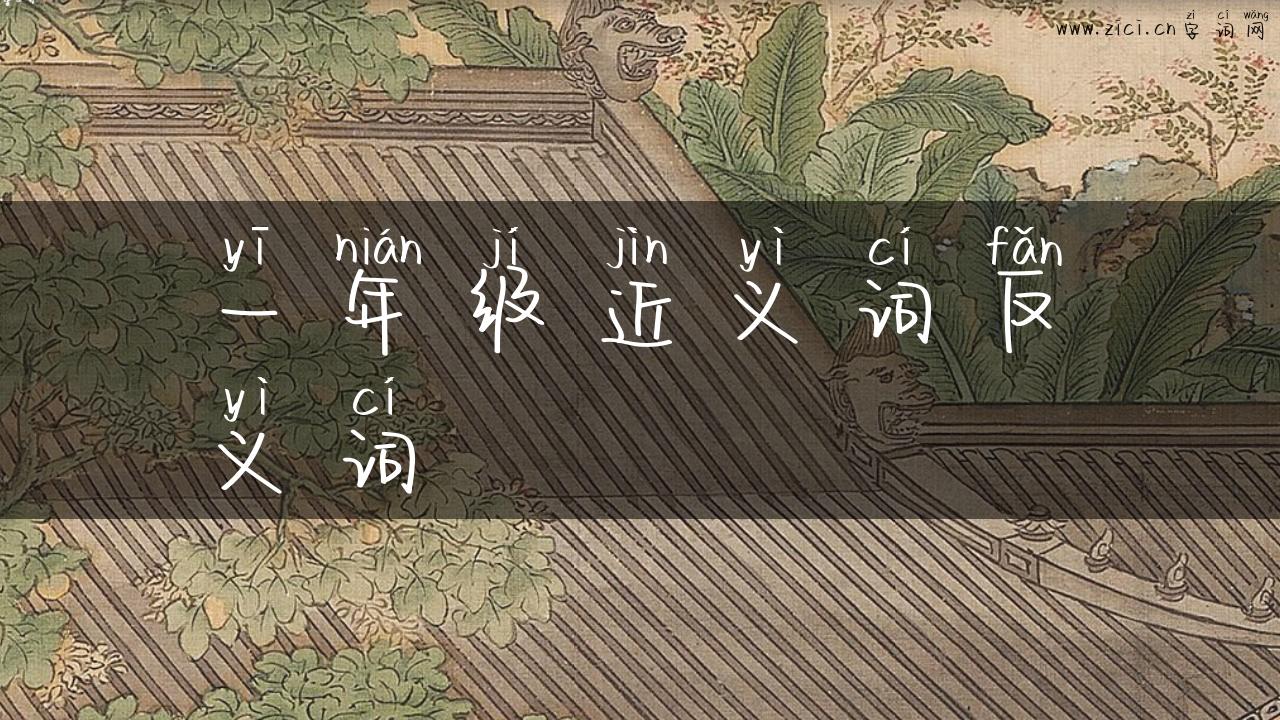 zì cí wǎng
www.zici.cn 字词网
yī nián jí jìn yì cí fǎn
一年级近义词反
yì cí
义词